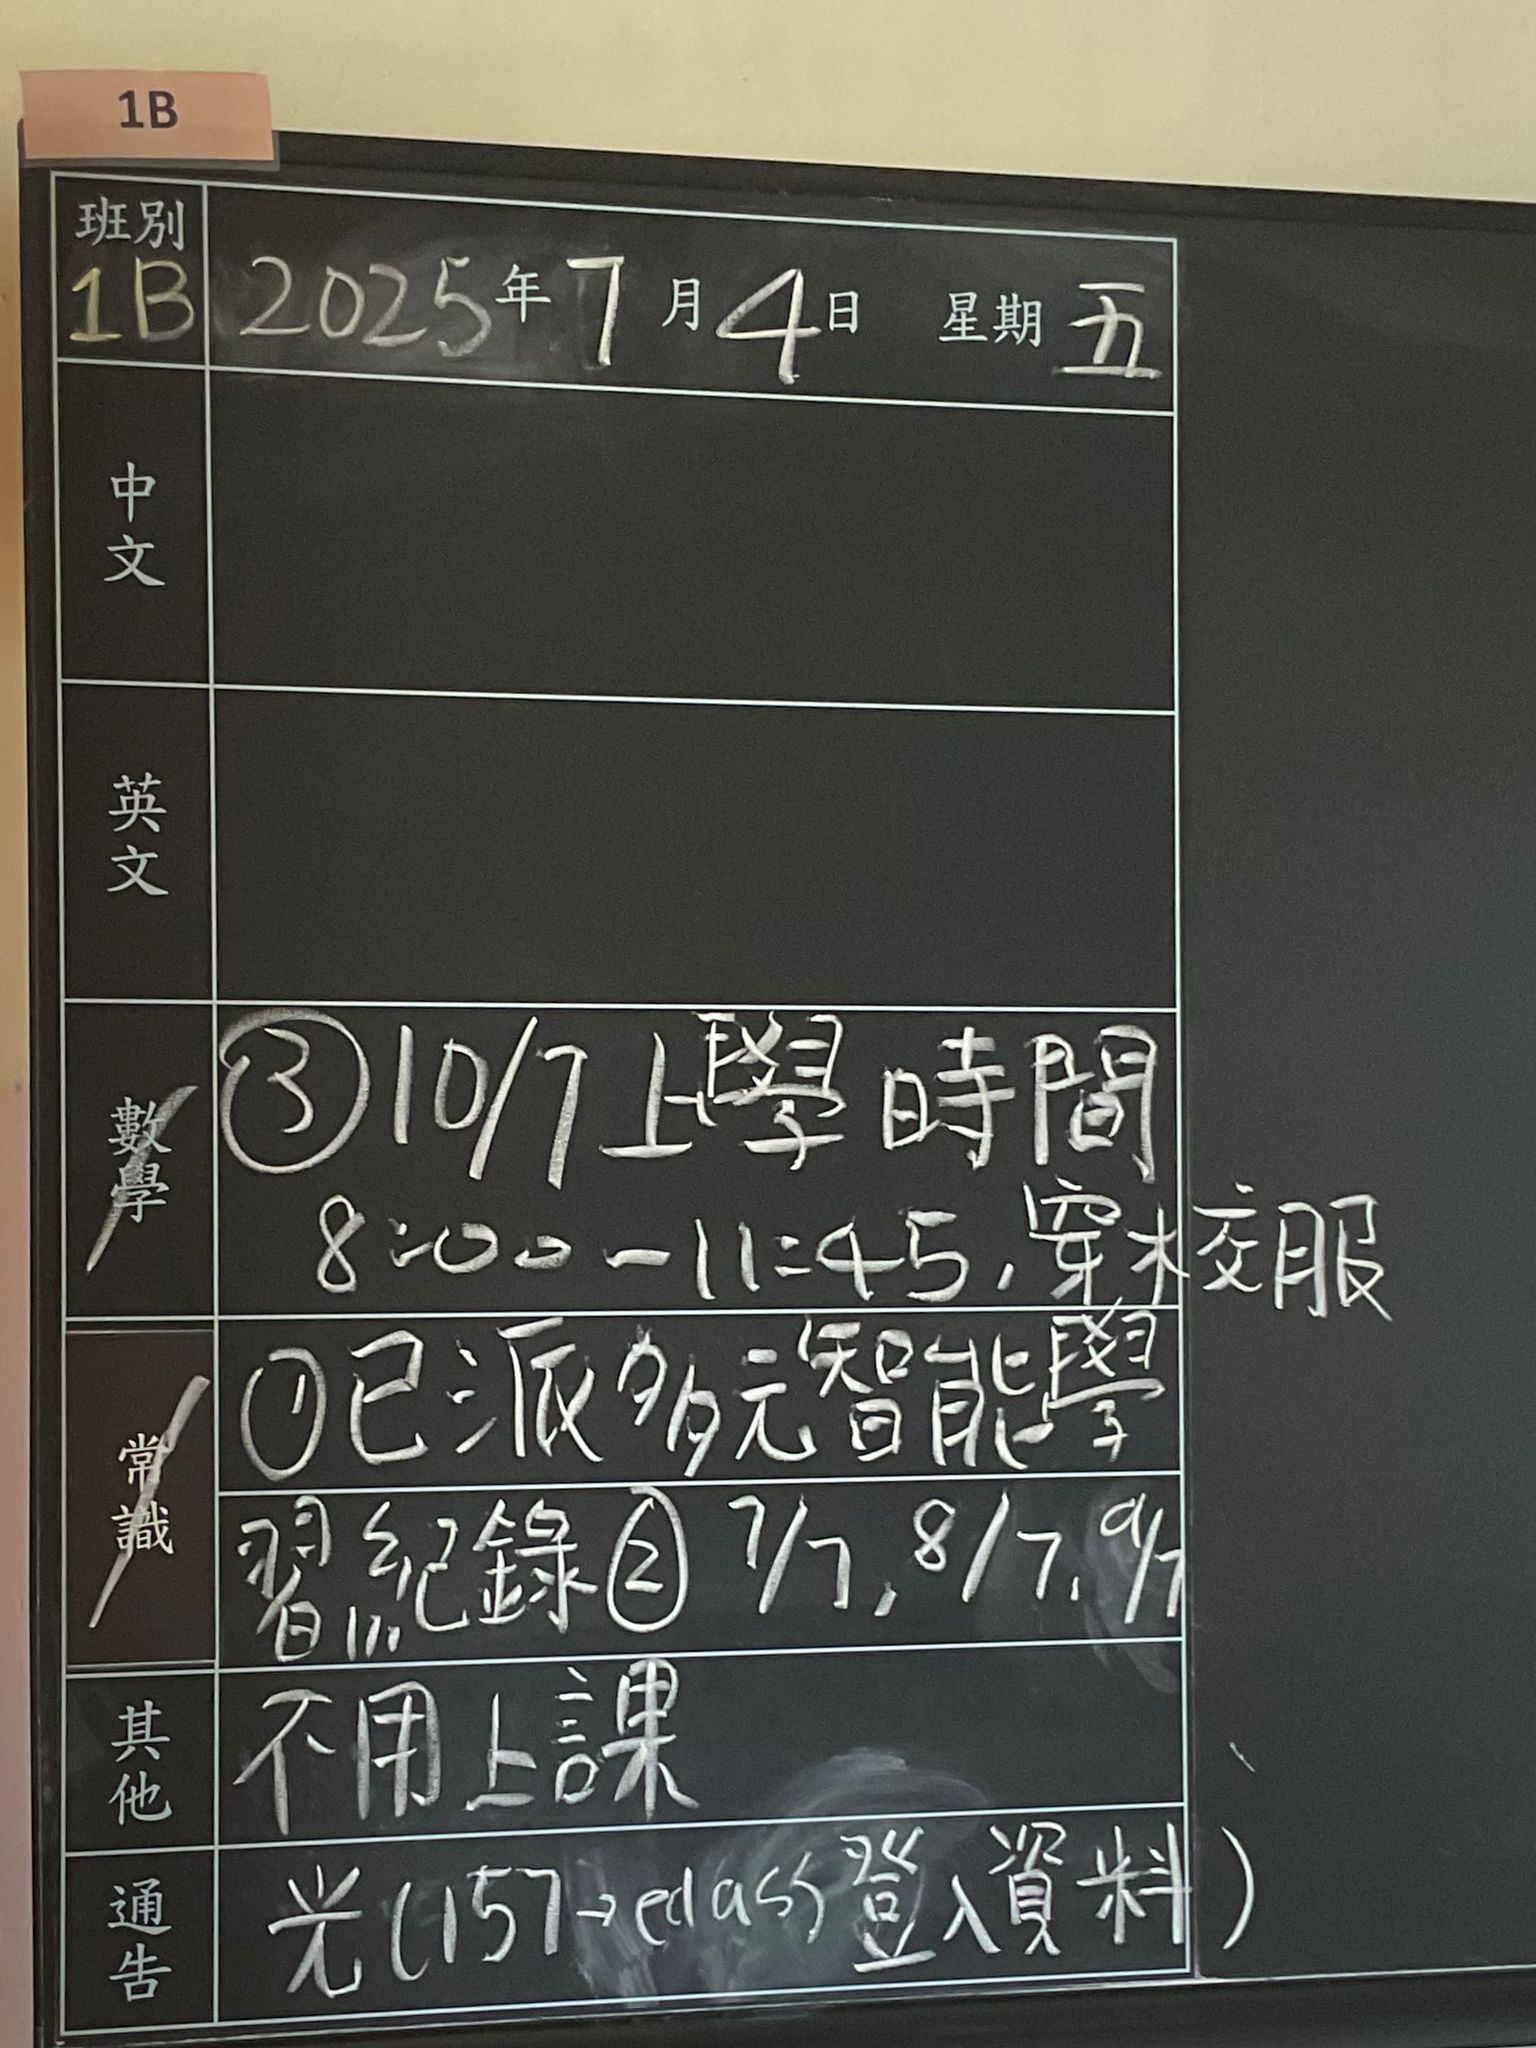 1B
班別
1B 2025年7月4日 星期五
中文
英文
數學
③10/7上學時間
8:00-11:45,穿校服
常識
①已派多元智能學
習紀錄② 7/7, 8/7, 9/7
其他
不用上課
通告
光(157→eclass登入資料)